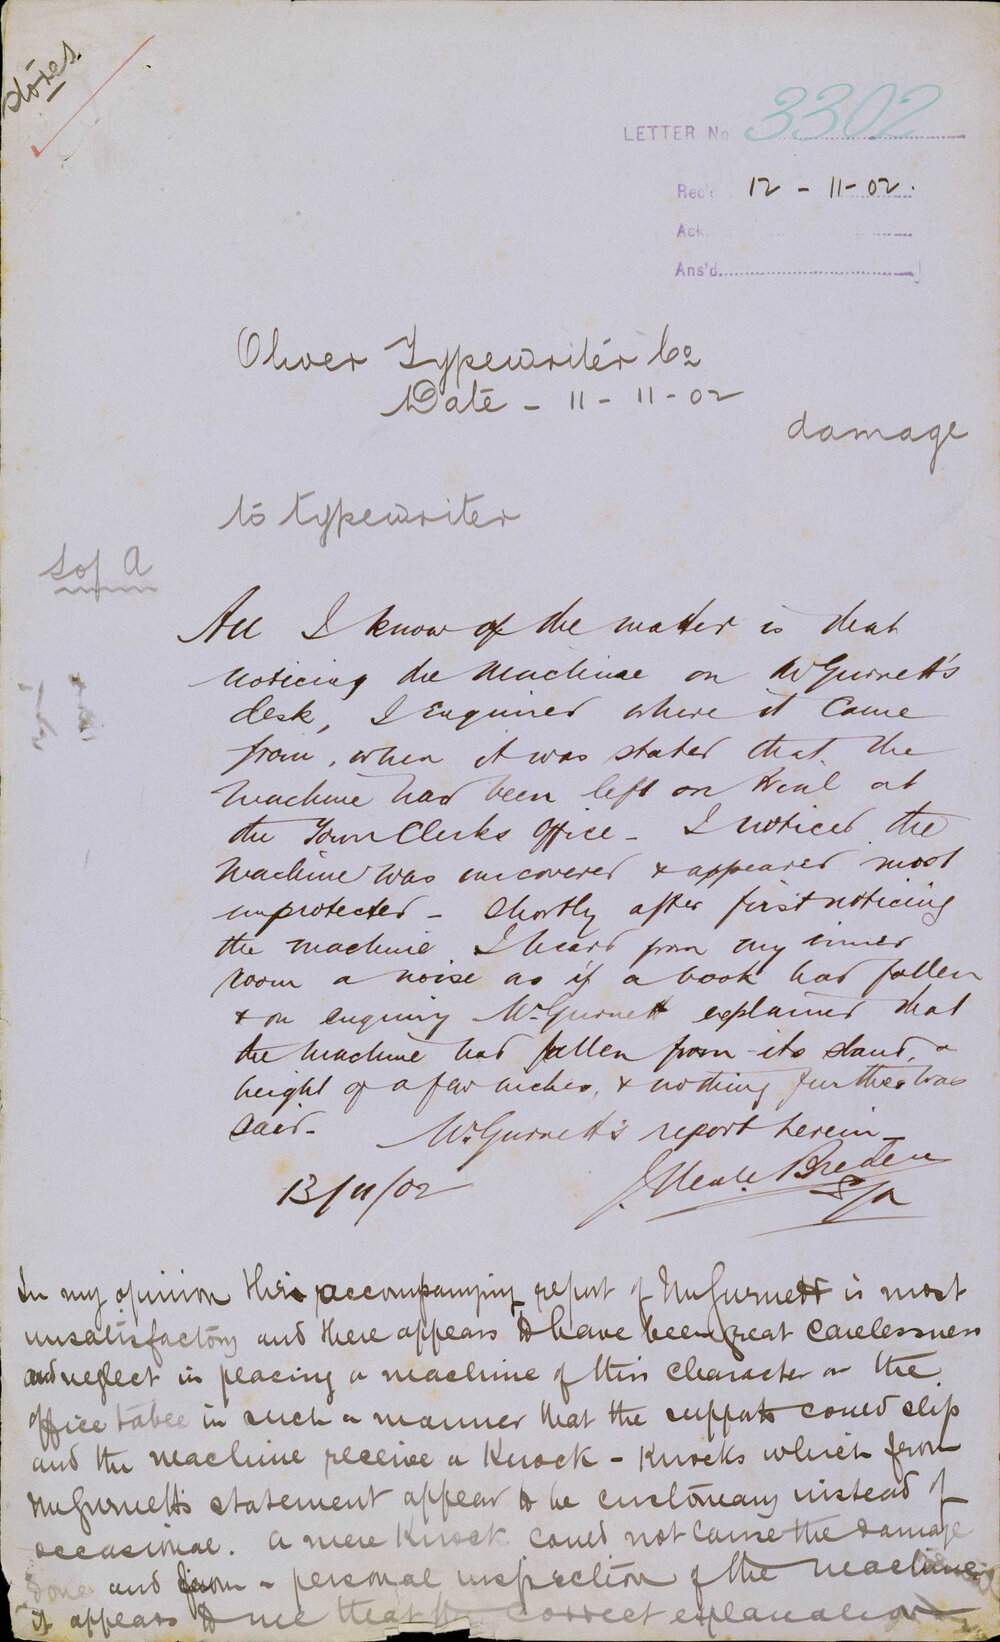 Stores
LETTER No 3302
Rec'd 12 - 11 - 02.
Ack.
Ans'd.
Oliver Typewriter Co
Date - 11 - 11 - 02
damage
to typewriter
All I know of the matter is that
noticing the machine on McGurnett's
desk, I enquired where it came
from, when it was stated that the
machine had been left on trial at
the Town Clerks Office - I noticed the
machine was uncovered & appeared most
unprotected - Shortly after first noticing
the machine I heard from my inner
room a noise as if a book had fallen
& on enquiry McGurnett explained that
the machine had fallen from its stand, a
height of a few inches, & nothing further was
said - McGurnett's report herein -
13/11/02 J. Neale Breden
In my opinion this accompanying report of McGurnett is most
unsatisfactory and there appears to have been great carelessness
and neglect in placing a machine of this character on the
office table in such a manner that the supports could slip
and the machine receive a knock - knocks which from
McGurnett's statement appear to be customary instead of
occasional. A mere knock could not cause the damage
done and from a personal inspection of the machine
it appears to me that the correct explanation